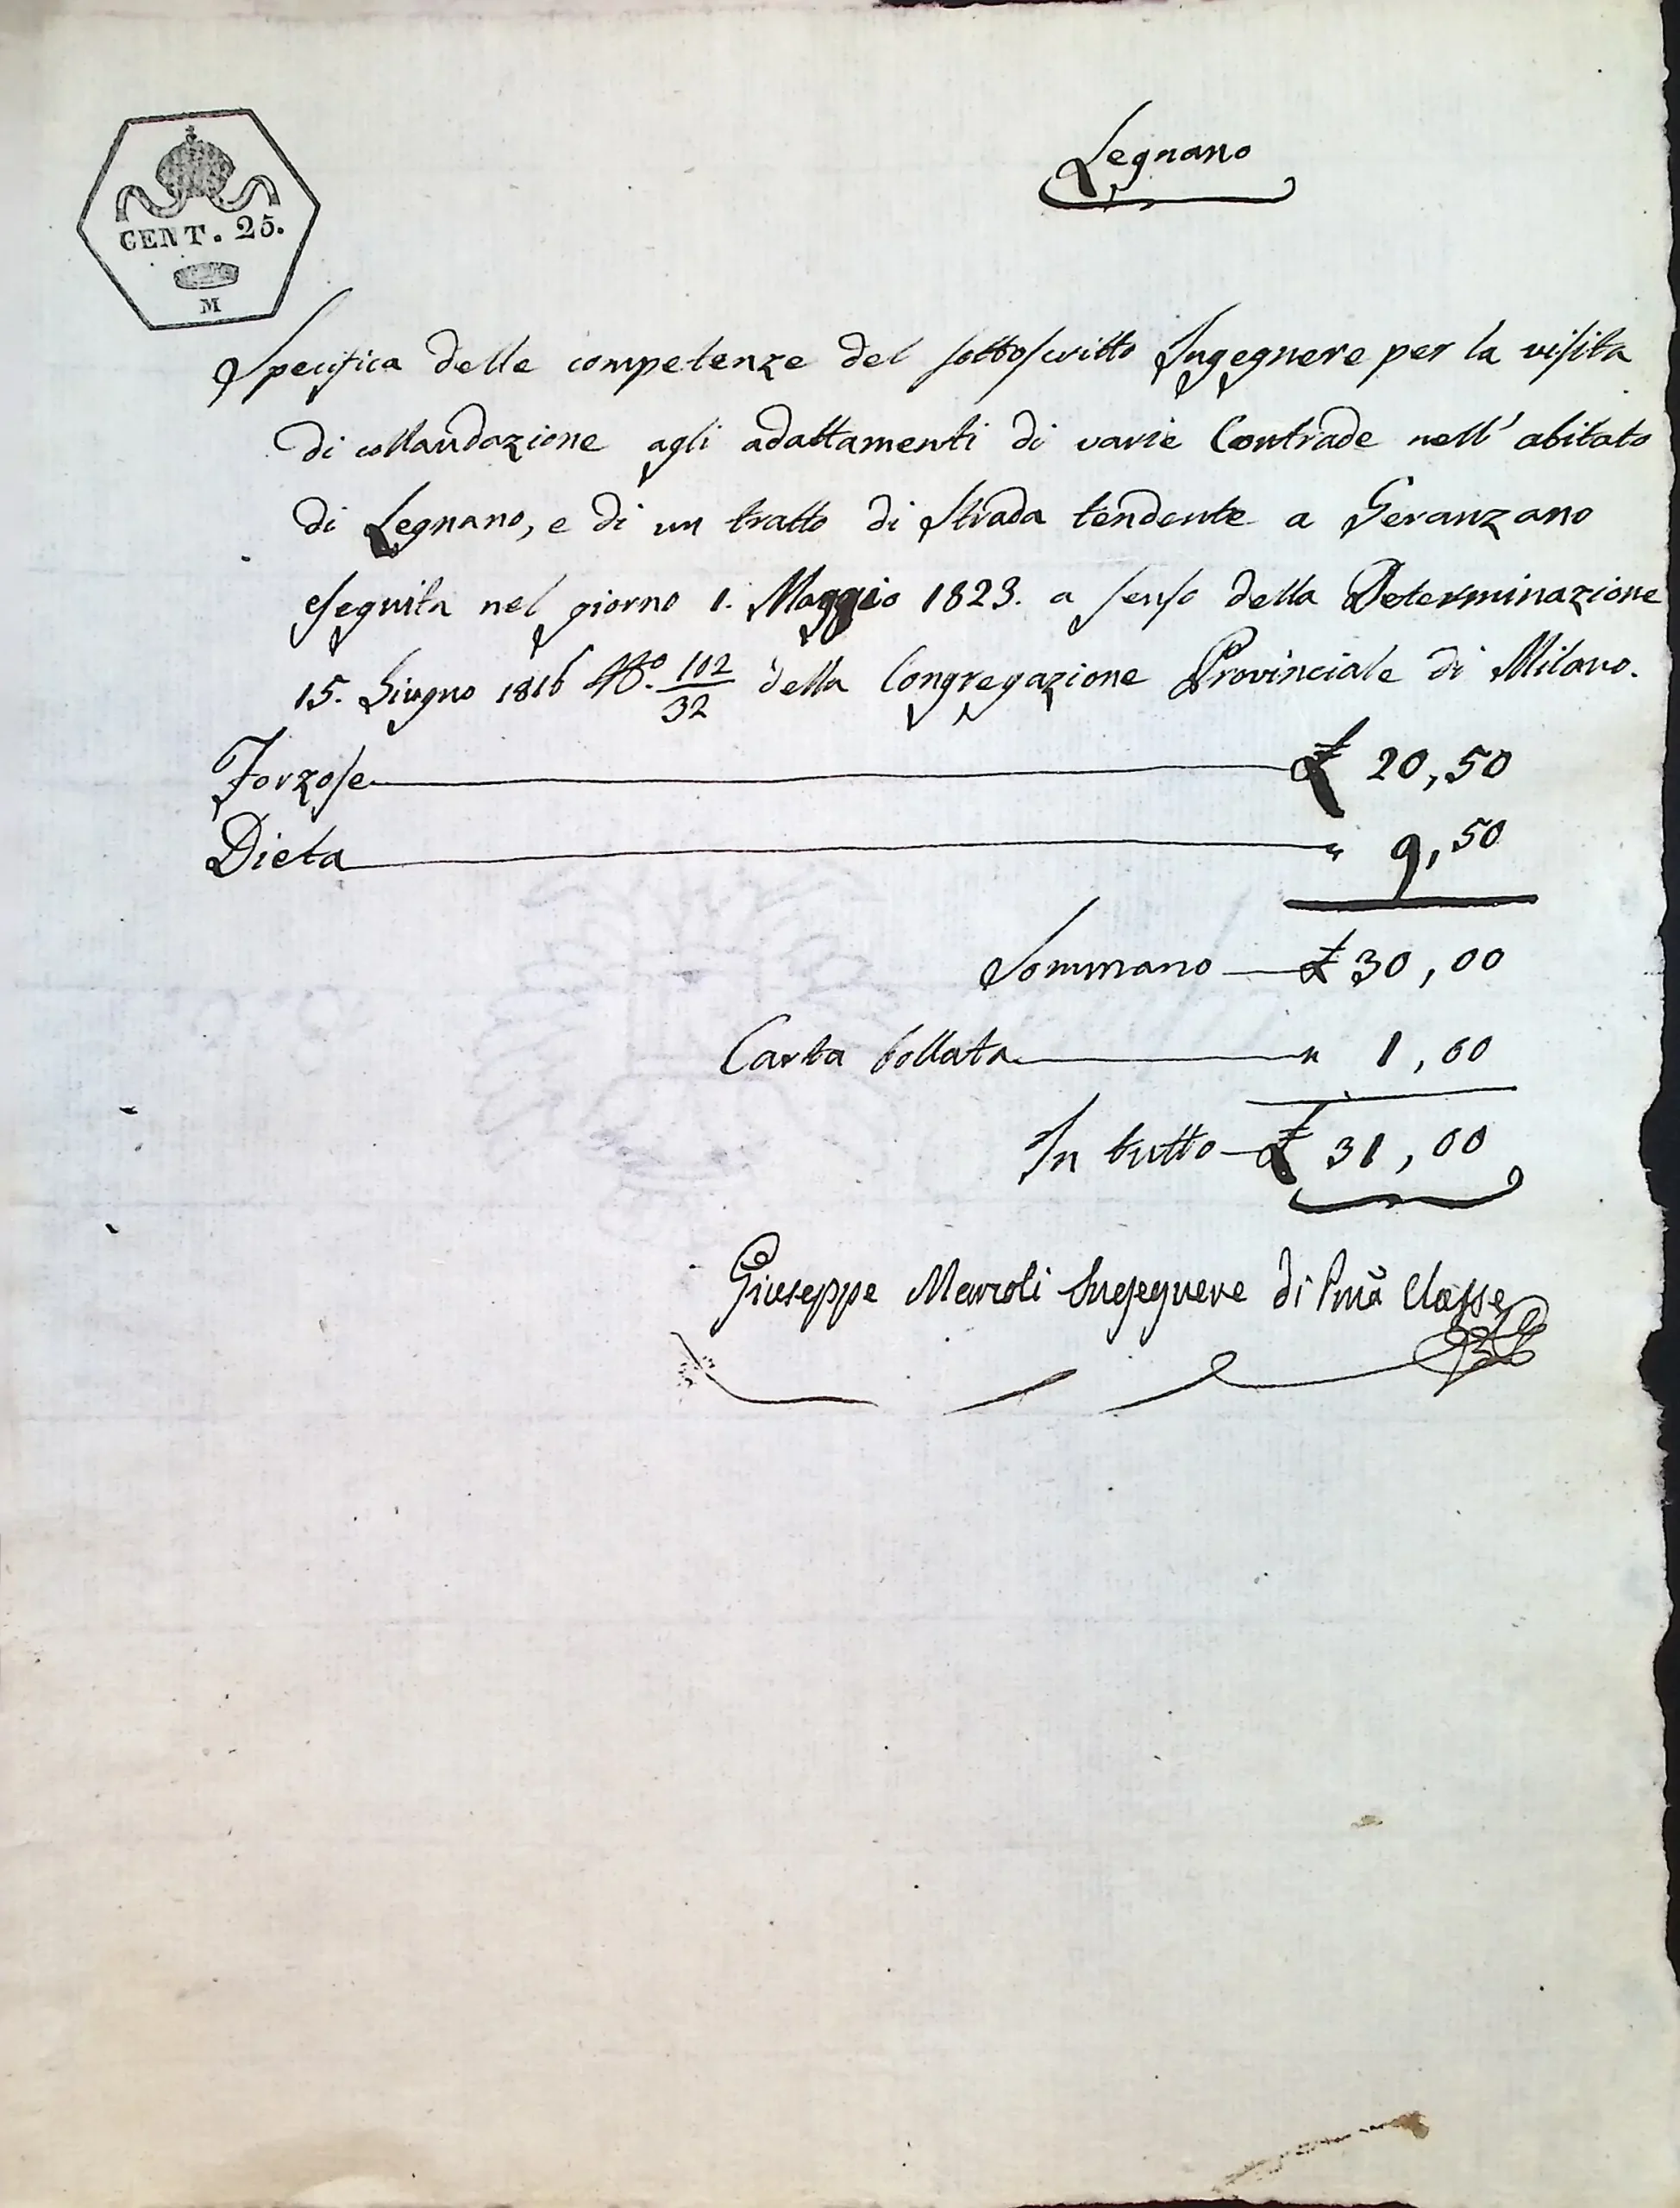 Legnano
CENT. 25.
M
Specifica delle competenze del sottoscritto Ingegnere per la visita
di collaudazione agli adattamenti di varie Contrade nell' abitato
di Legnano, e di un tratto di Strada tendente a Geranzano
eseguita nel giorno 1. Maggio 1823. a senso della Determinazione
15. Giugno 1816 N.º 102/32 della Congregazione Provinciale di Milano.
Forzose £ 20,50
Dieta " 9,50
Sommano £ 30,00
Carta bollata " 1,00
In tutto £ 31,00
Giuseppe Ingegnere di Pma Classe